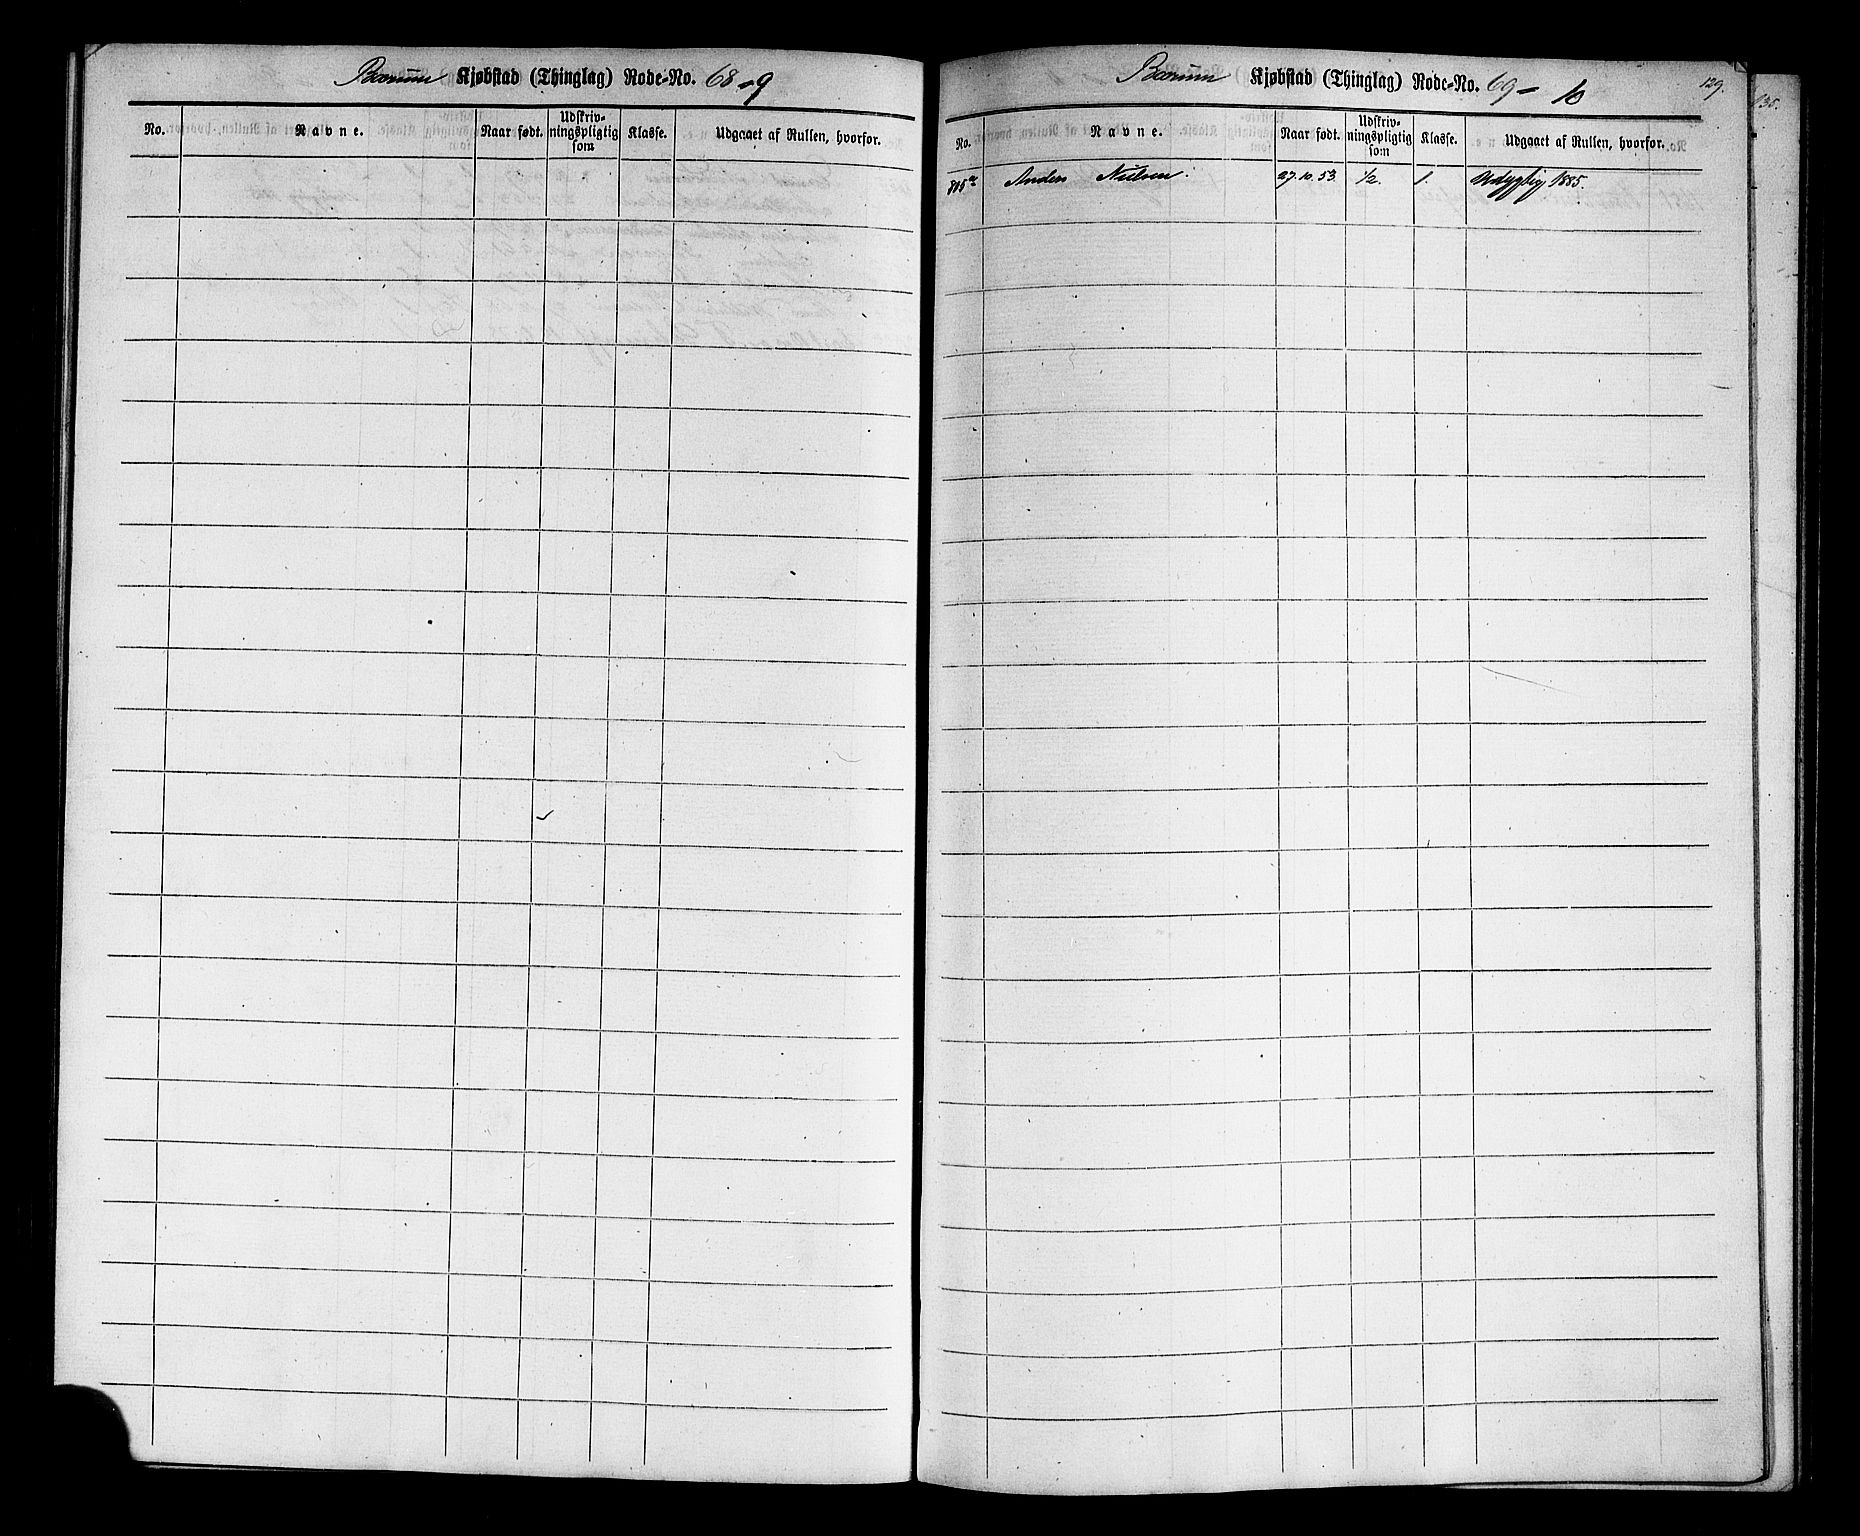 Bærum Kjøbstad (Thinglag) Rode-No. 68-9
No. Navne. Naar født. Udskriv-ningspligtig som Klasse. Udgaaet af Rullen, hvorfor.
Bærum Kjøbstad (Thinglag) Rode-No. 69-10
129.
135.
No. Navne. Naar født. Udskriv-ningspligtig som Klasse. Udgaaet af Rullen, hvorfor.
Anders Nielsen. 27.10.53 1/2. 1. Udygtig 1885.